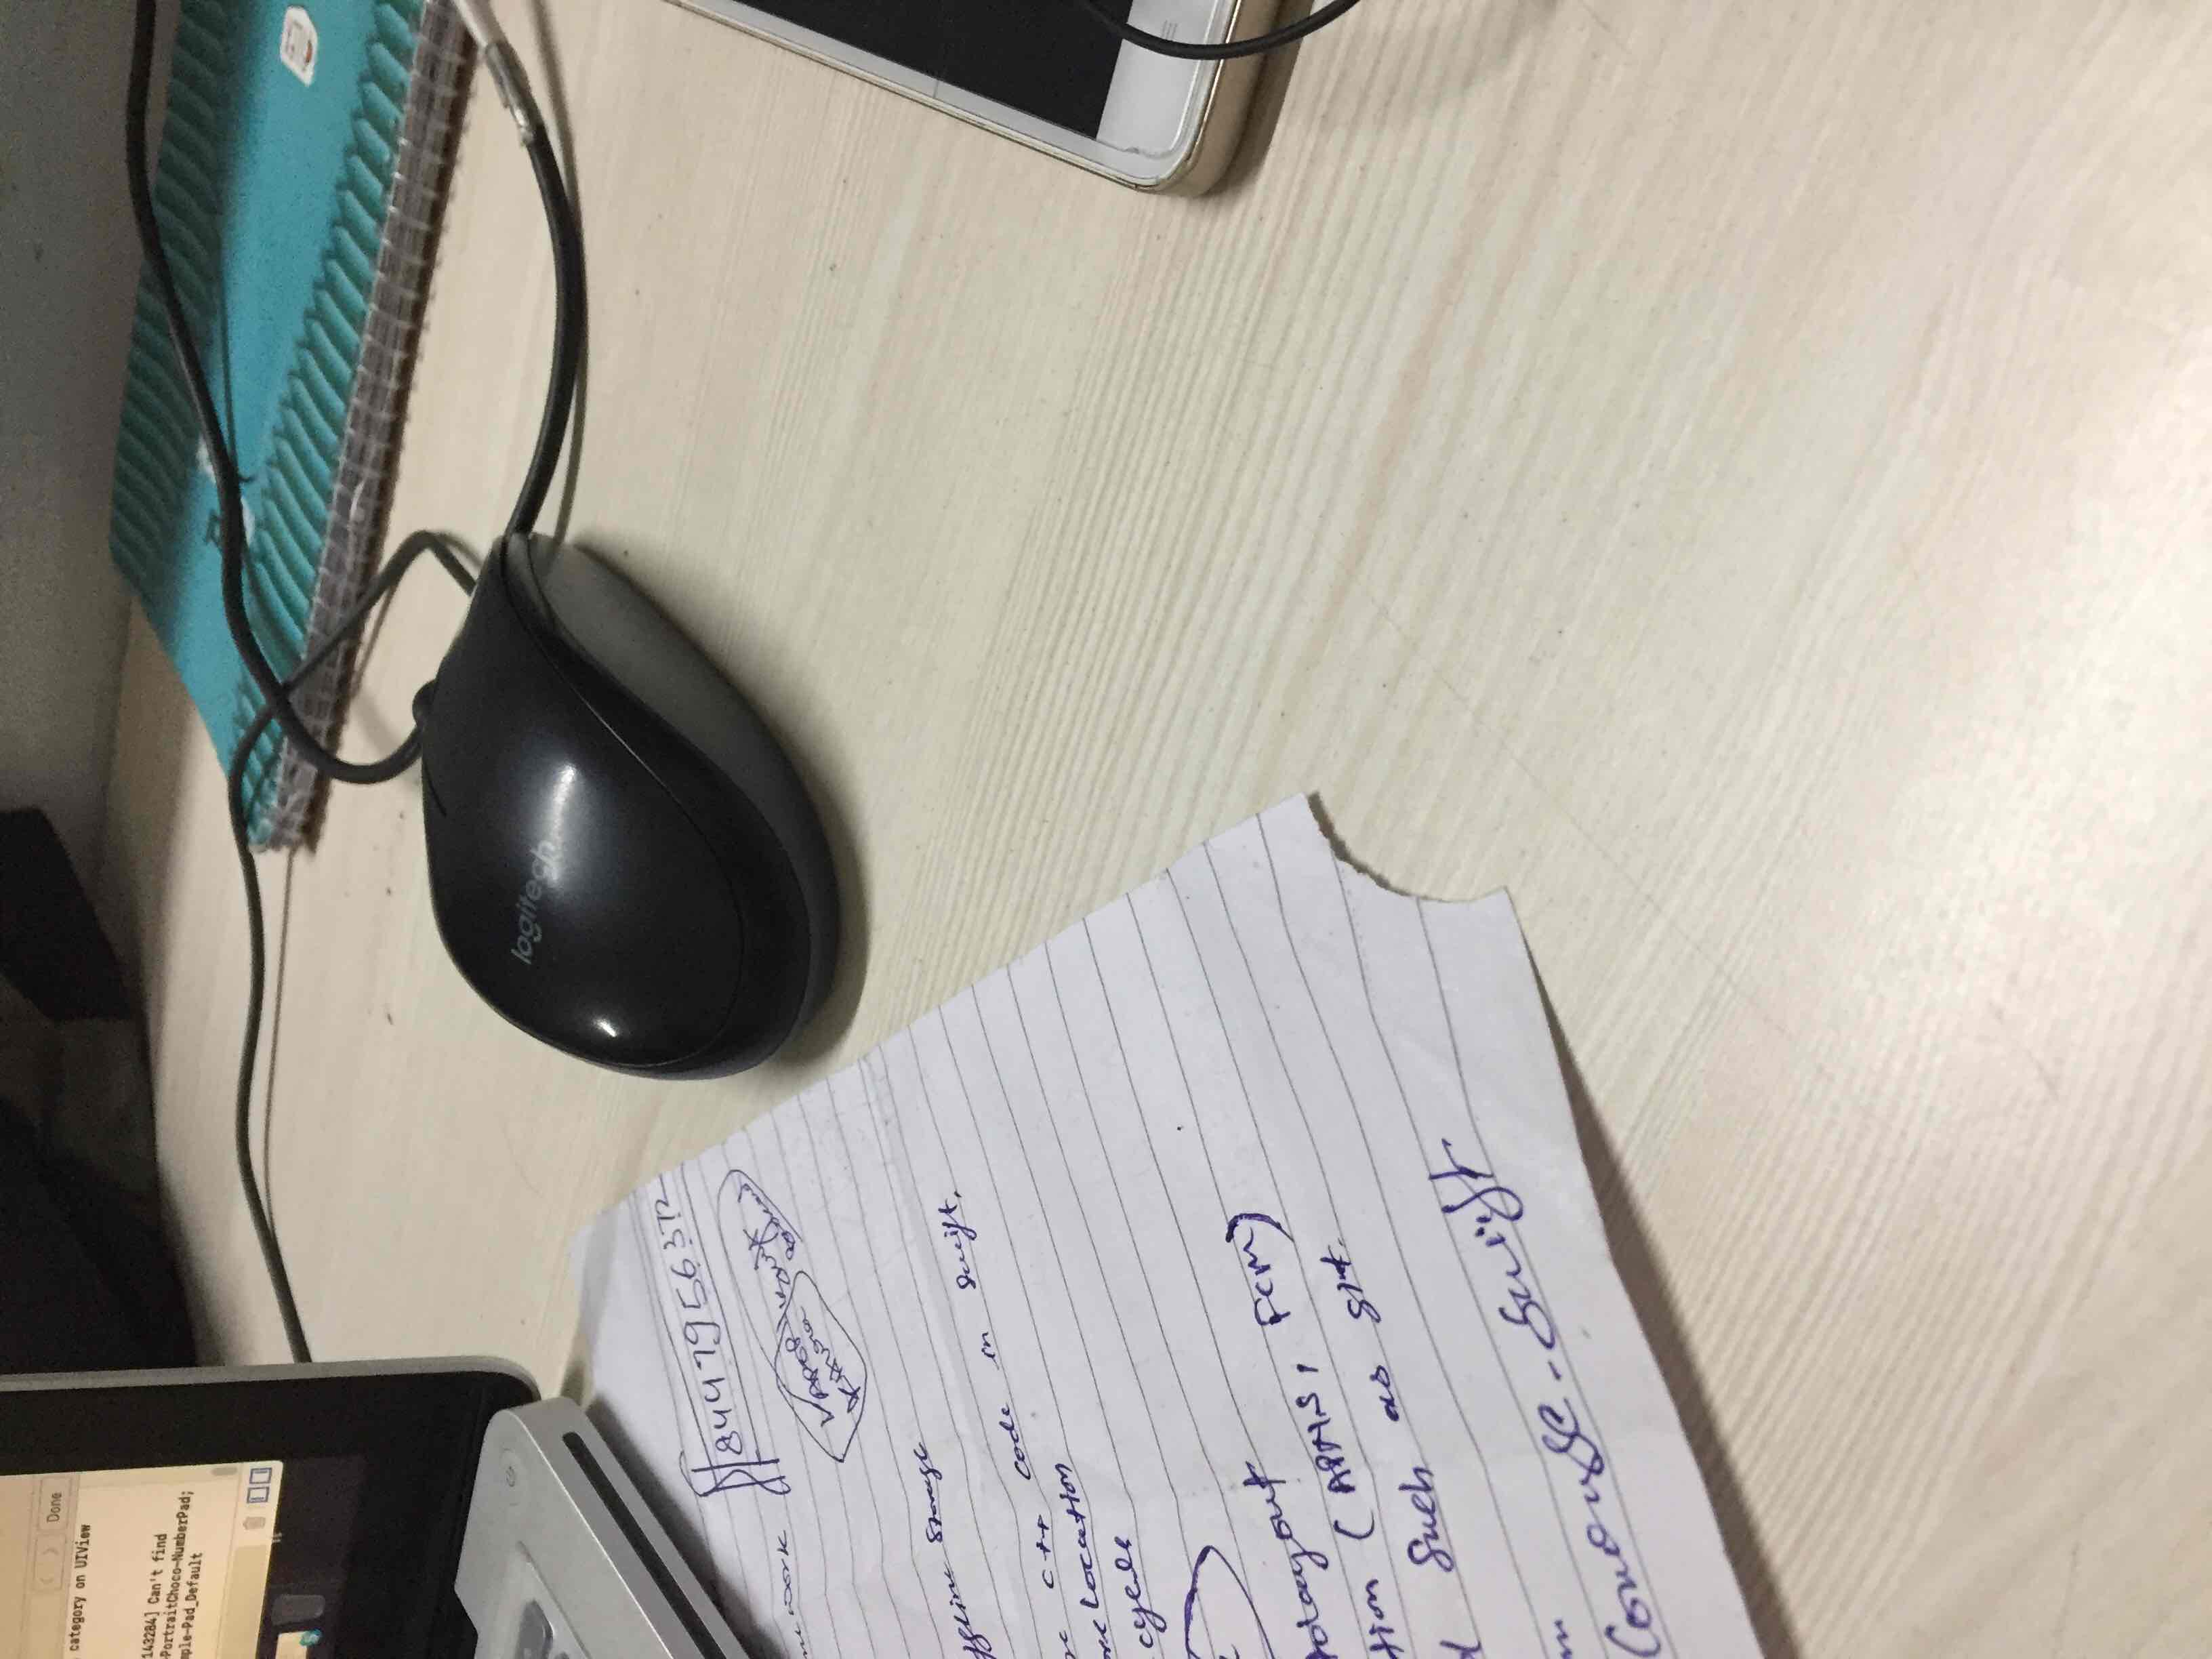 Done
category on UIView
143284] Can't find
-PortraitChoco-NumberPad;
mple-Pad_Default
logitech
8447956372
work
VAPOR
Swift
ffline Storage
c++ code in swift.
Location
cycle
tolayout
tion (APNS, FCM)
Such as git.
swift